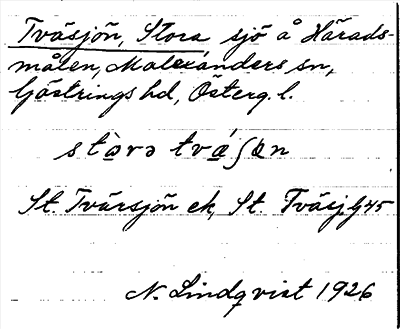 Tväsjön, Stora sjö å Härads-
målen, Malexanders sn,
Göstrings hd, Österg. l.
stọ̀rə tvạ́ʃọn
St. Tvärsjön ek, St. Tväsj. G45
N. Lindqvist 1926